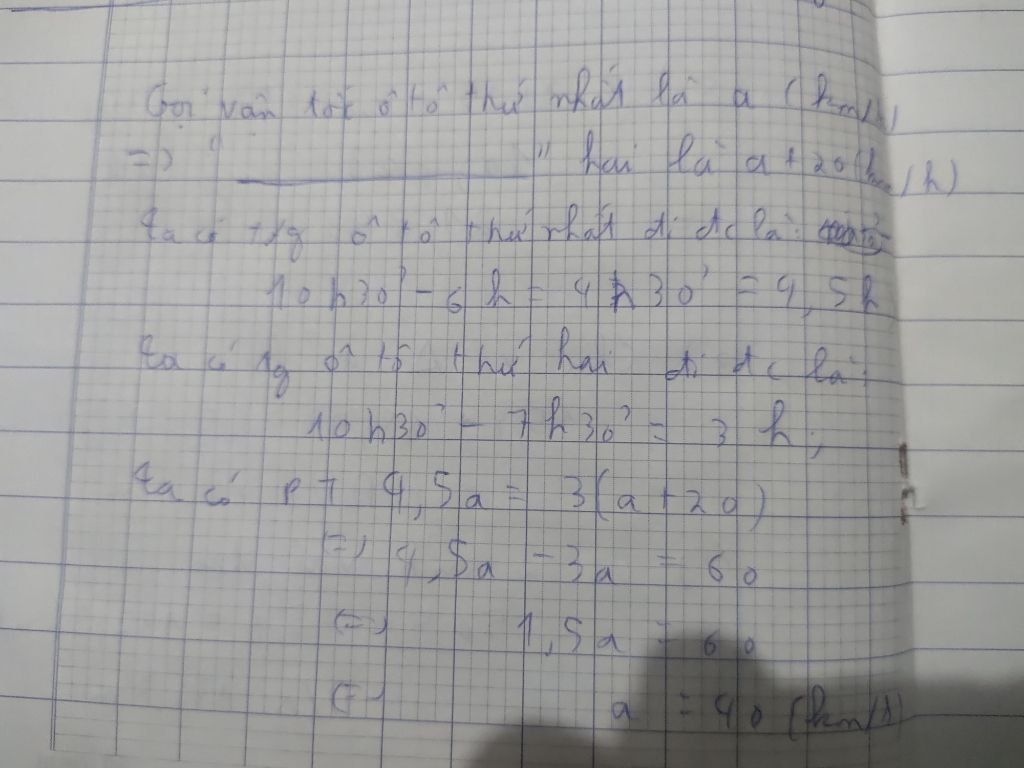 Gọi vận tốc ô tô thứ nhất là a (km/h)
=> " ———— " hai là a + 20 (km/h)
Ta có tg ô tô thứ nhất đi đc là:
10h30' - 6h = 4h30' = 4,5h
Ta có tg ô tô thứ hai đi đc là:
10h30' - 7h30' = 3h;
Ta có PT 4,5a = 3(a + 20)
=> 4,5a - 3a = 60
(=) 1,5a = 60
(=) a = 40 (km/h)